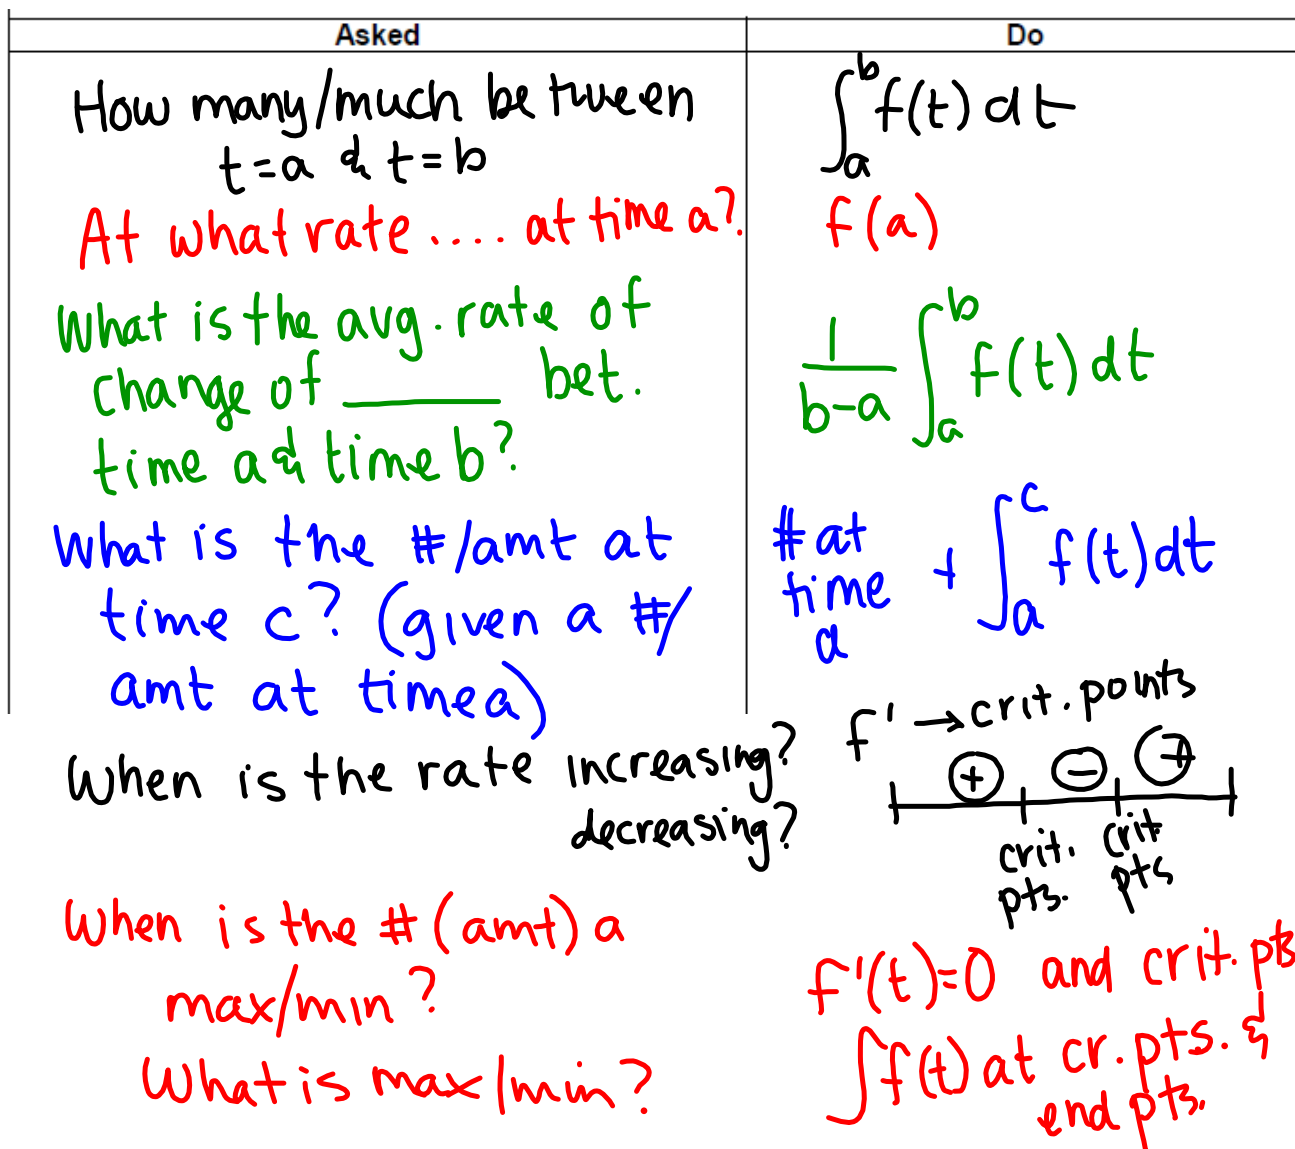 Asked
Do
How many/much between
t=a & t=b
∫_a^b f(t) dt
At what rate .... at time a?
f(a)
What is the avg. rate of
change of ______ bet.
time a & time b?
1/(b-a) ∫_a^b f(t) dt
What is the #/amt at
time c? (given a #/
amt at time a)
# at
time
a
+ ∫_a^c f(t)dt
When is the rate increasing?
decreasing?
f' → crit. points
+ − +
crit. crit
pts. pts
When is the # (amt) a
max/min?
What is max/min?
f'(t)=0 and crit. pts
∫f(t) at cr. pts. &
end pts.